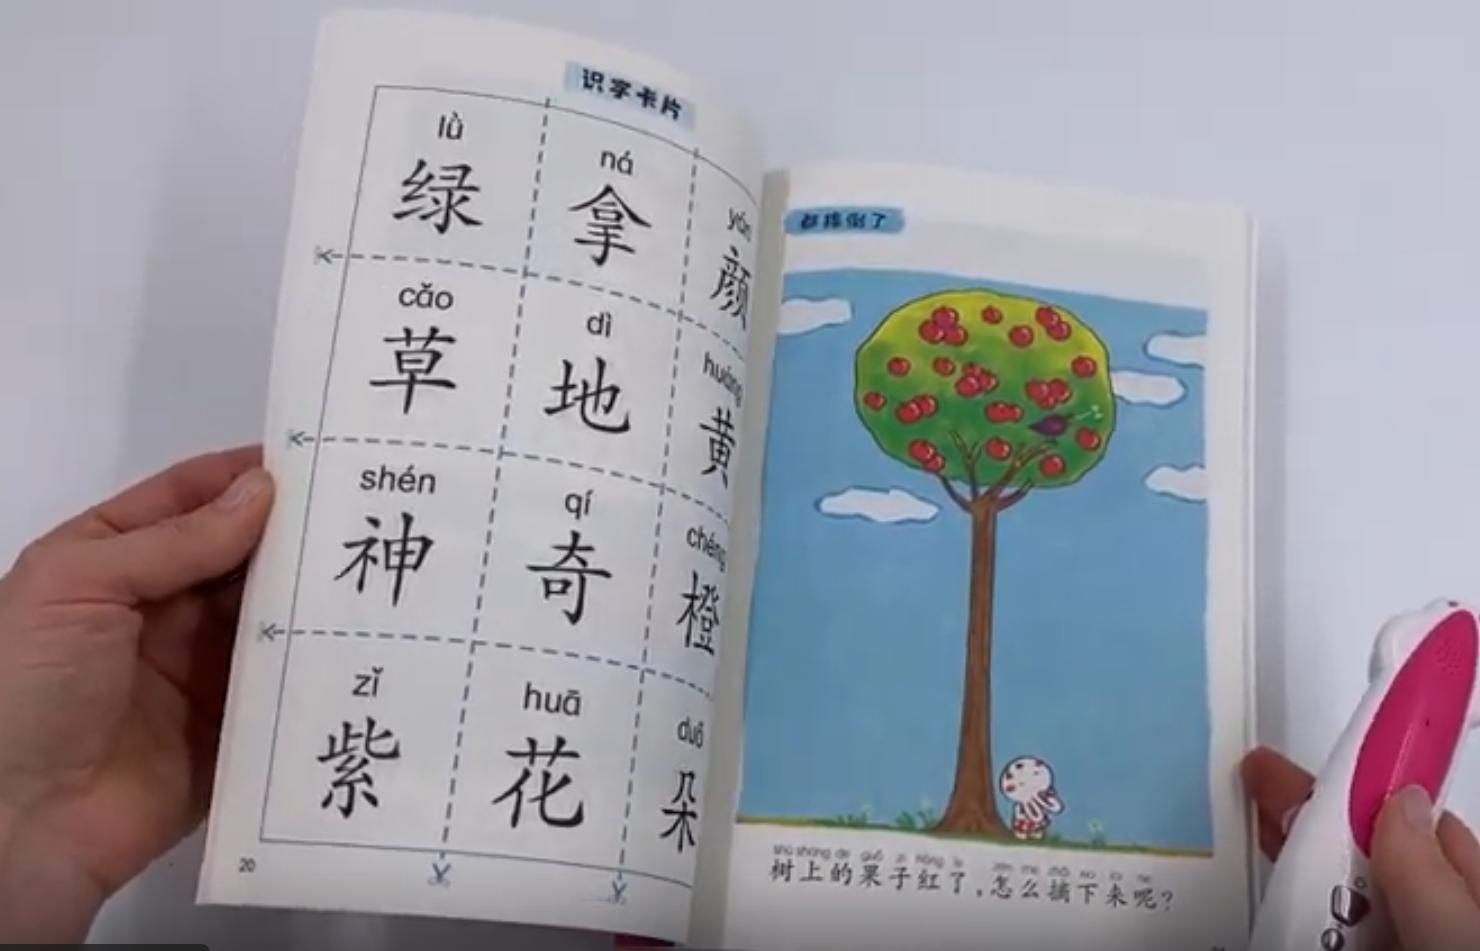 识字卡片
lǜ ná yán
绿 拿 颜
cǎo dì huáng
草 地 黄
shén qí chéng
神 奇 橙
zǐ huā duǒ
紫 花 朵
20
都摔倒了
shù shàng de guǒ zi hóng le zěn me zhāi xià lái ne
树上的果子红了,怎么摘下来呢?